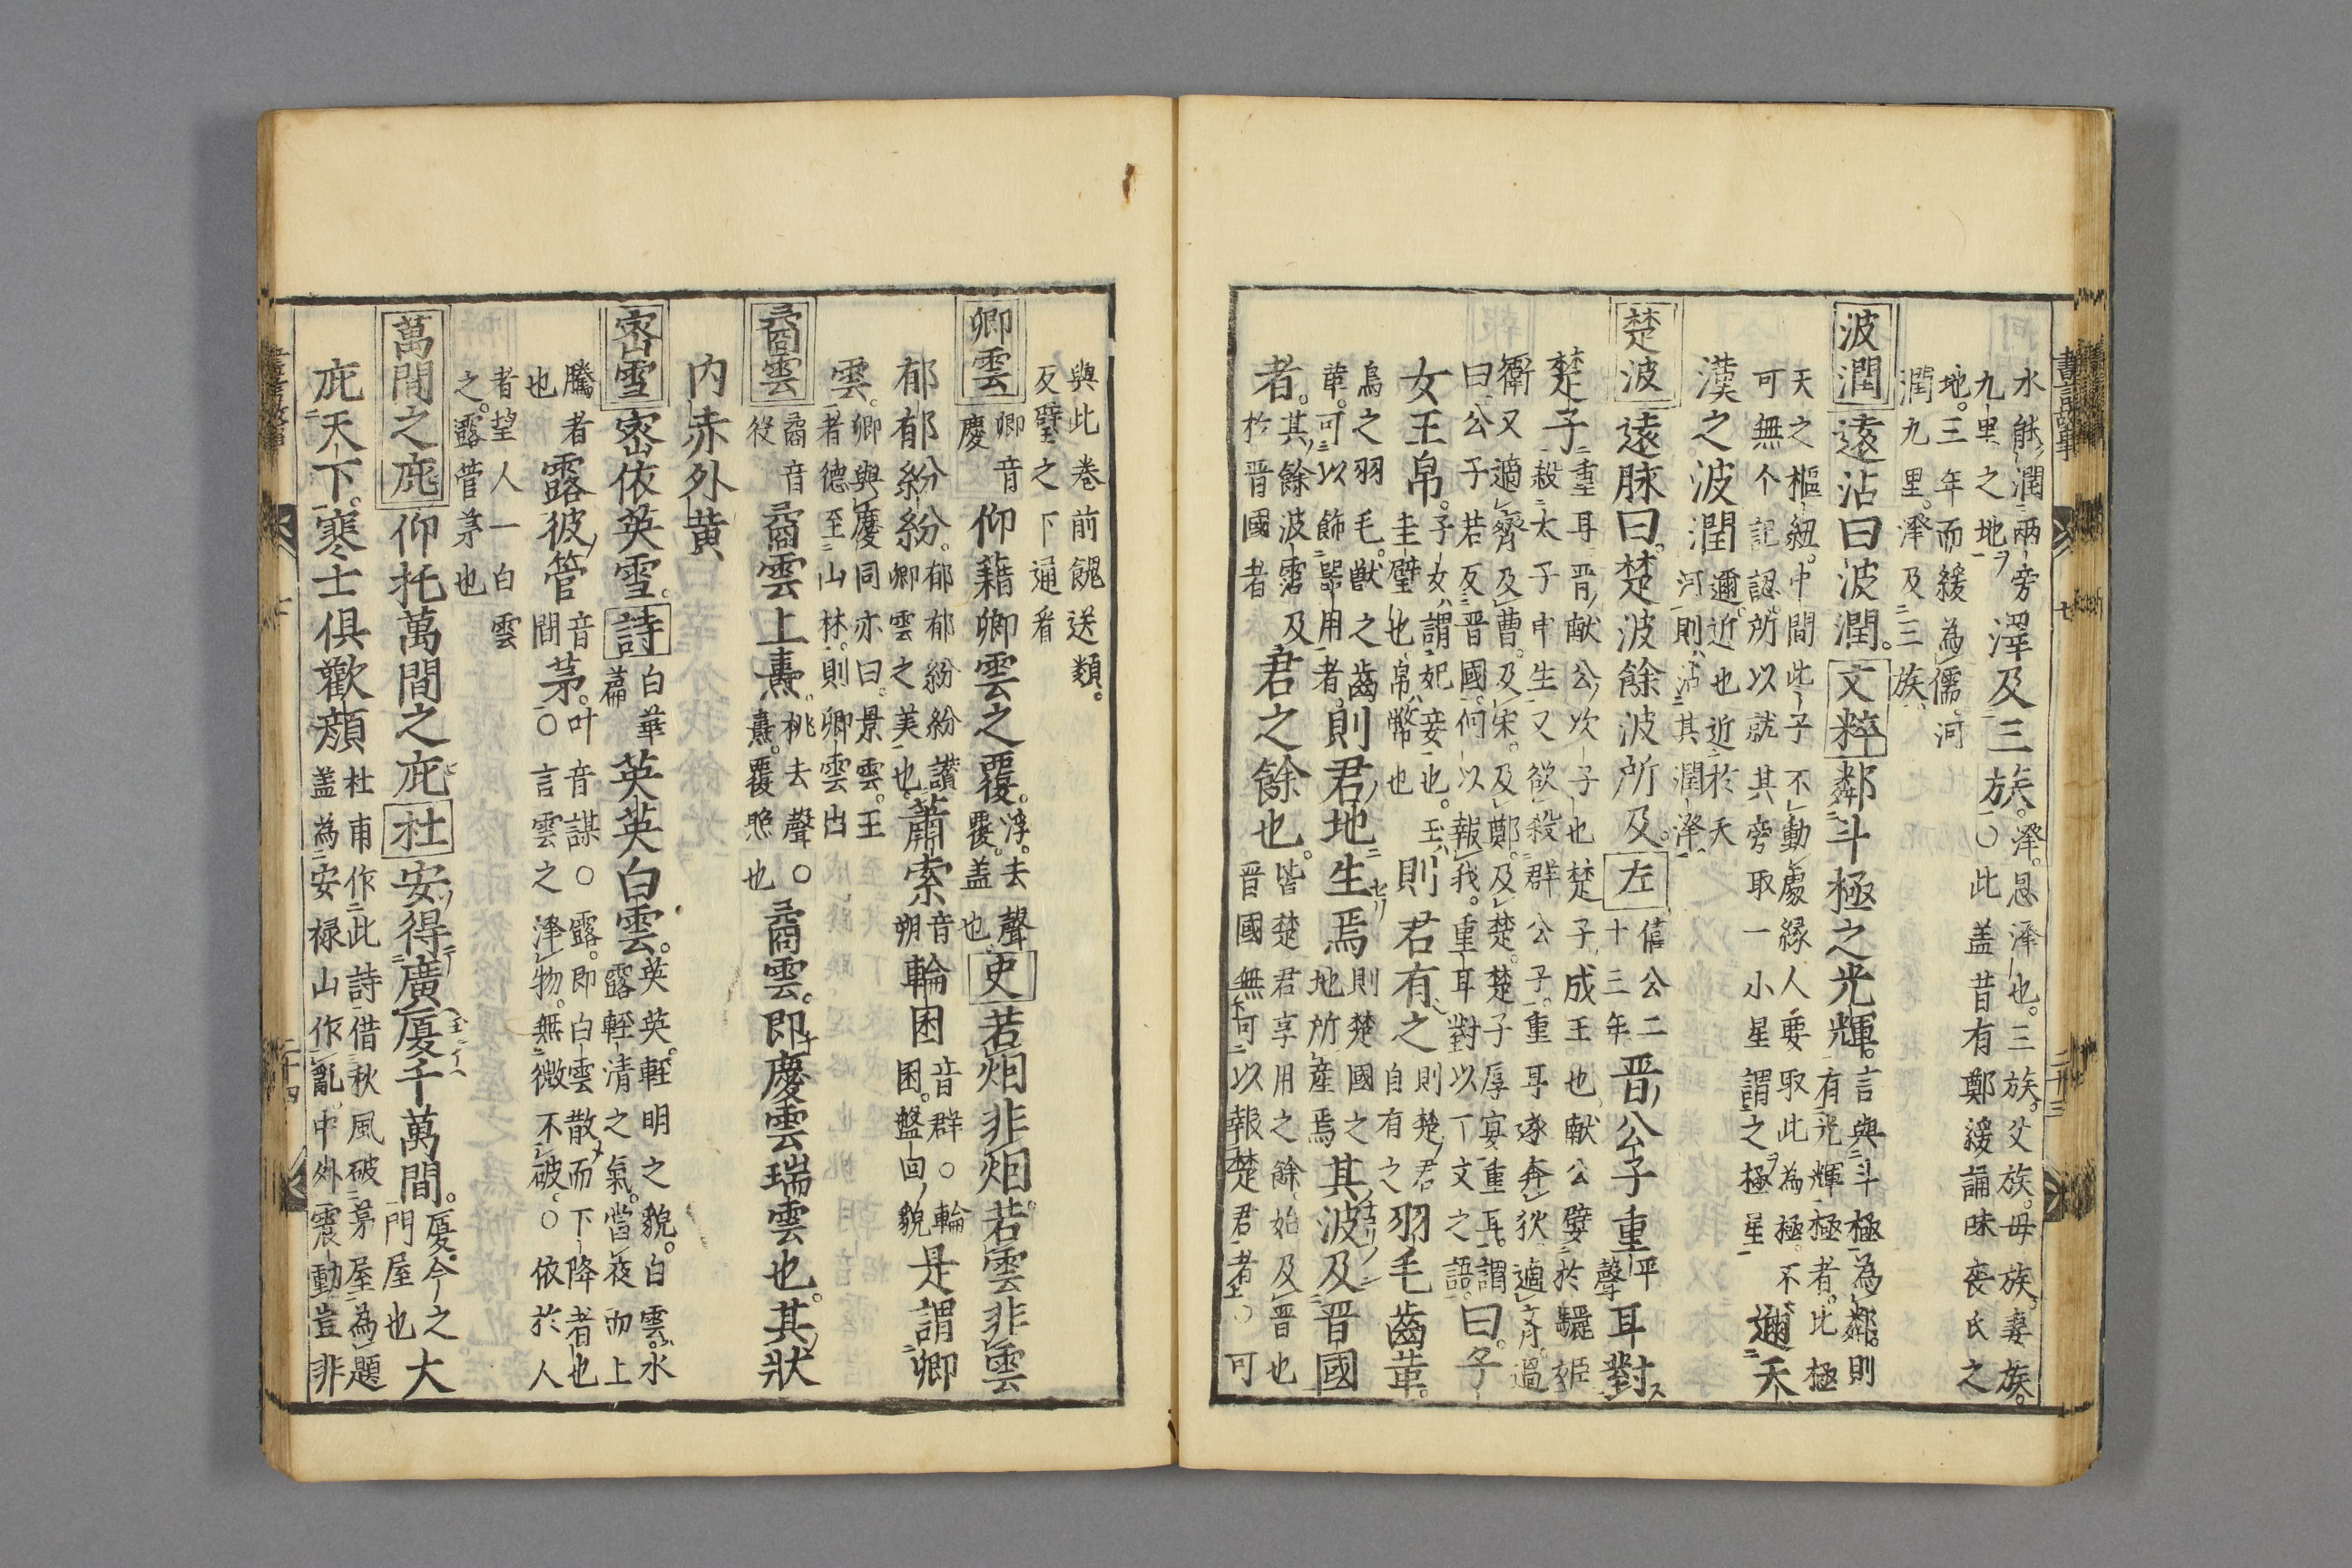 水能潤兩旁
九里之地
澤及三族。
澤。恩澤也。三族。父族。母族。妻族。
○此盖昔有鄭緩誦味喪氏之
地。三年而緩為儒。河
潤九里。澤及三族、
波潤 遠沾曰波潤。文粹 鄰斗極之光輝。
言與斗極為鄰。則
有光輝極者。此極
天之樞紐。中間此子不動處縁人要取此為極。不
可無个記認。所以就其旁取一小星謂之極星
邇天
漢之波潤
邇。近也近於天
河則沾其潤澤
楚波 遠脉曰。楚波餘波所及。左
僖公二
十三年
晋公子重
平
聲
耳對
楚子
重耳晋献公次子也楚子成王也献公嬖於驪姫
殺太子申生又欲殺群公子。重耳遂奔狄適文月。過
衛又適齊及曹。及宋。及鄭。及楚。楚子厚宴重耳。謂
曰公子若反晋國。何以報我。重耳對以丁文之語。
曰。子
女王帛。
子女、謂妃妾也。玉、
圭璧也、帛、幣也
則君有之
則楚君
自有之
羽毛齒革。
烏之羽毛。獣之齒
革。可以飾器用者。
則君地生焉
則楚國之
地所産焉
其波及晋國
者。
其餘波霑及
於晋國者
君之餘也。
皆楚君享用之餘。始及晋也
晋國無可以報楚君者○可
書言故事
七
二十三
與此巻前餽送類。
反璧之下通看
卿雲
卿音
慶
仰藉卿雲之覆。
浮。去聲
覆。盖也
史 若烟非烟。若雲非雲
郁郁紛紛。
郁郁紛紛讃
卿雲之美也。
蕭索
音
朔
輪囷
音群○輪
囷。盤回貌
是謂卿
雲。
卿與慶同亦曰。景雲。王
者德至山林。則卿雲出
矞雲
矞音
役
矞雲上燾。
桃去聲○
燾。覆照也
矞雲。即慶雲瑞雲也。其狀
内赤外黄
密雪 密依英雪。詩
白華
篇
英英白雲。
英英。軽明之貌。白雲。水
露軽清之氣。當夜而上
騰者
也
露彼菅
音
間
茅。
叶音謀○露。即白雲散而下降者也
○言雲之澤物。無微不破。○依於人
者望人一白雲
之。露菅茅也
萬間之庇 仰托萬間之庇 杜 安得廣厦千萬間。
厦。今之大
門屋也
庇天下。寒士俱歡顔
杜甫作此詩借秋風破茅屋為題
盖為安禄山作亂。中外震動豈非
二十四